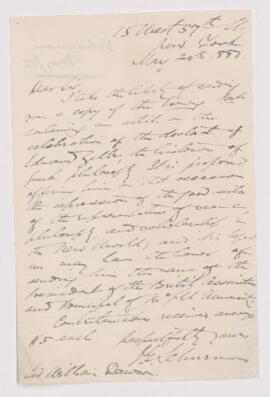 15 West 57th St
New York
May 20th, 1887.
Dear Sir,
I take the liberty of sending
you a copy of the Evening Post
containing an article on the
celebration of the doctorate of
Edward Zeller, the historian of
Greek philosophy. It is proposed
offering him on that occasion
the expression of the good wishes
of the representatives of
philosophy and scholarship in
the New World, and it is hoped
we may have the honor of
sending him the name of the
President of the British Association
and Principal of McGill University.
Contributions received average
$5 each
Respectfully yours,
J. G. Schurman
Sir William Dawson.